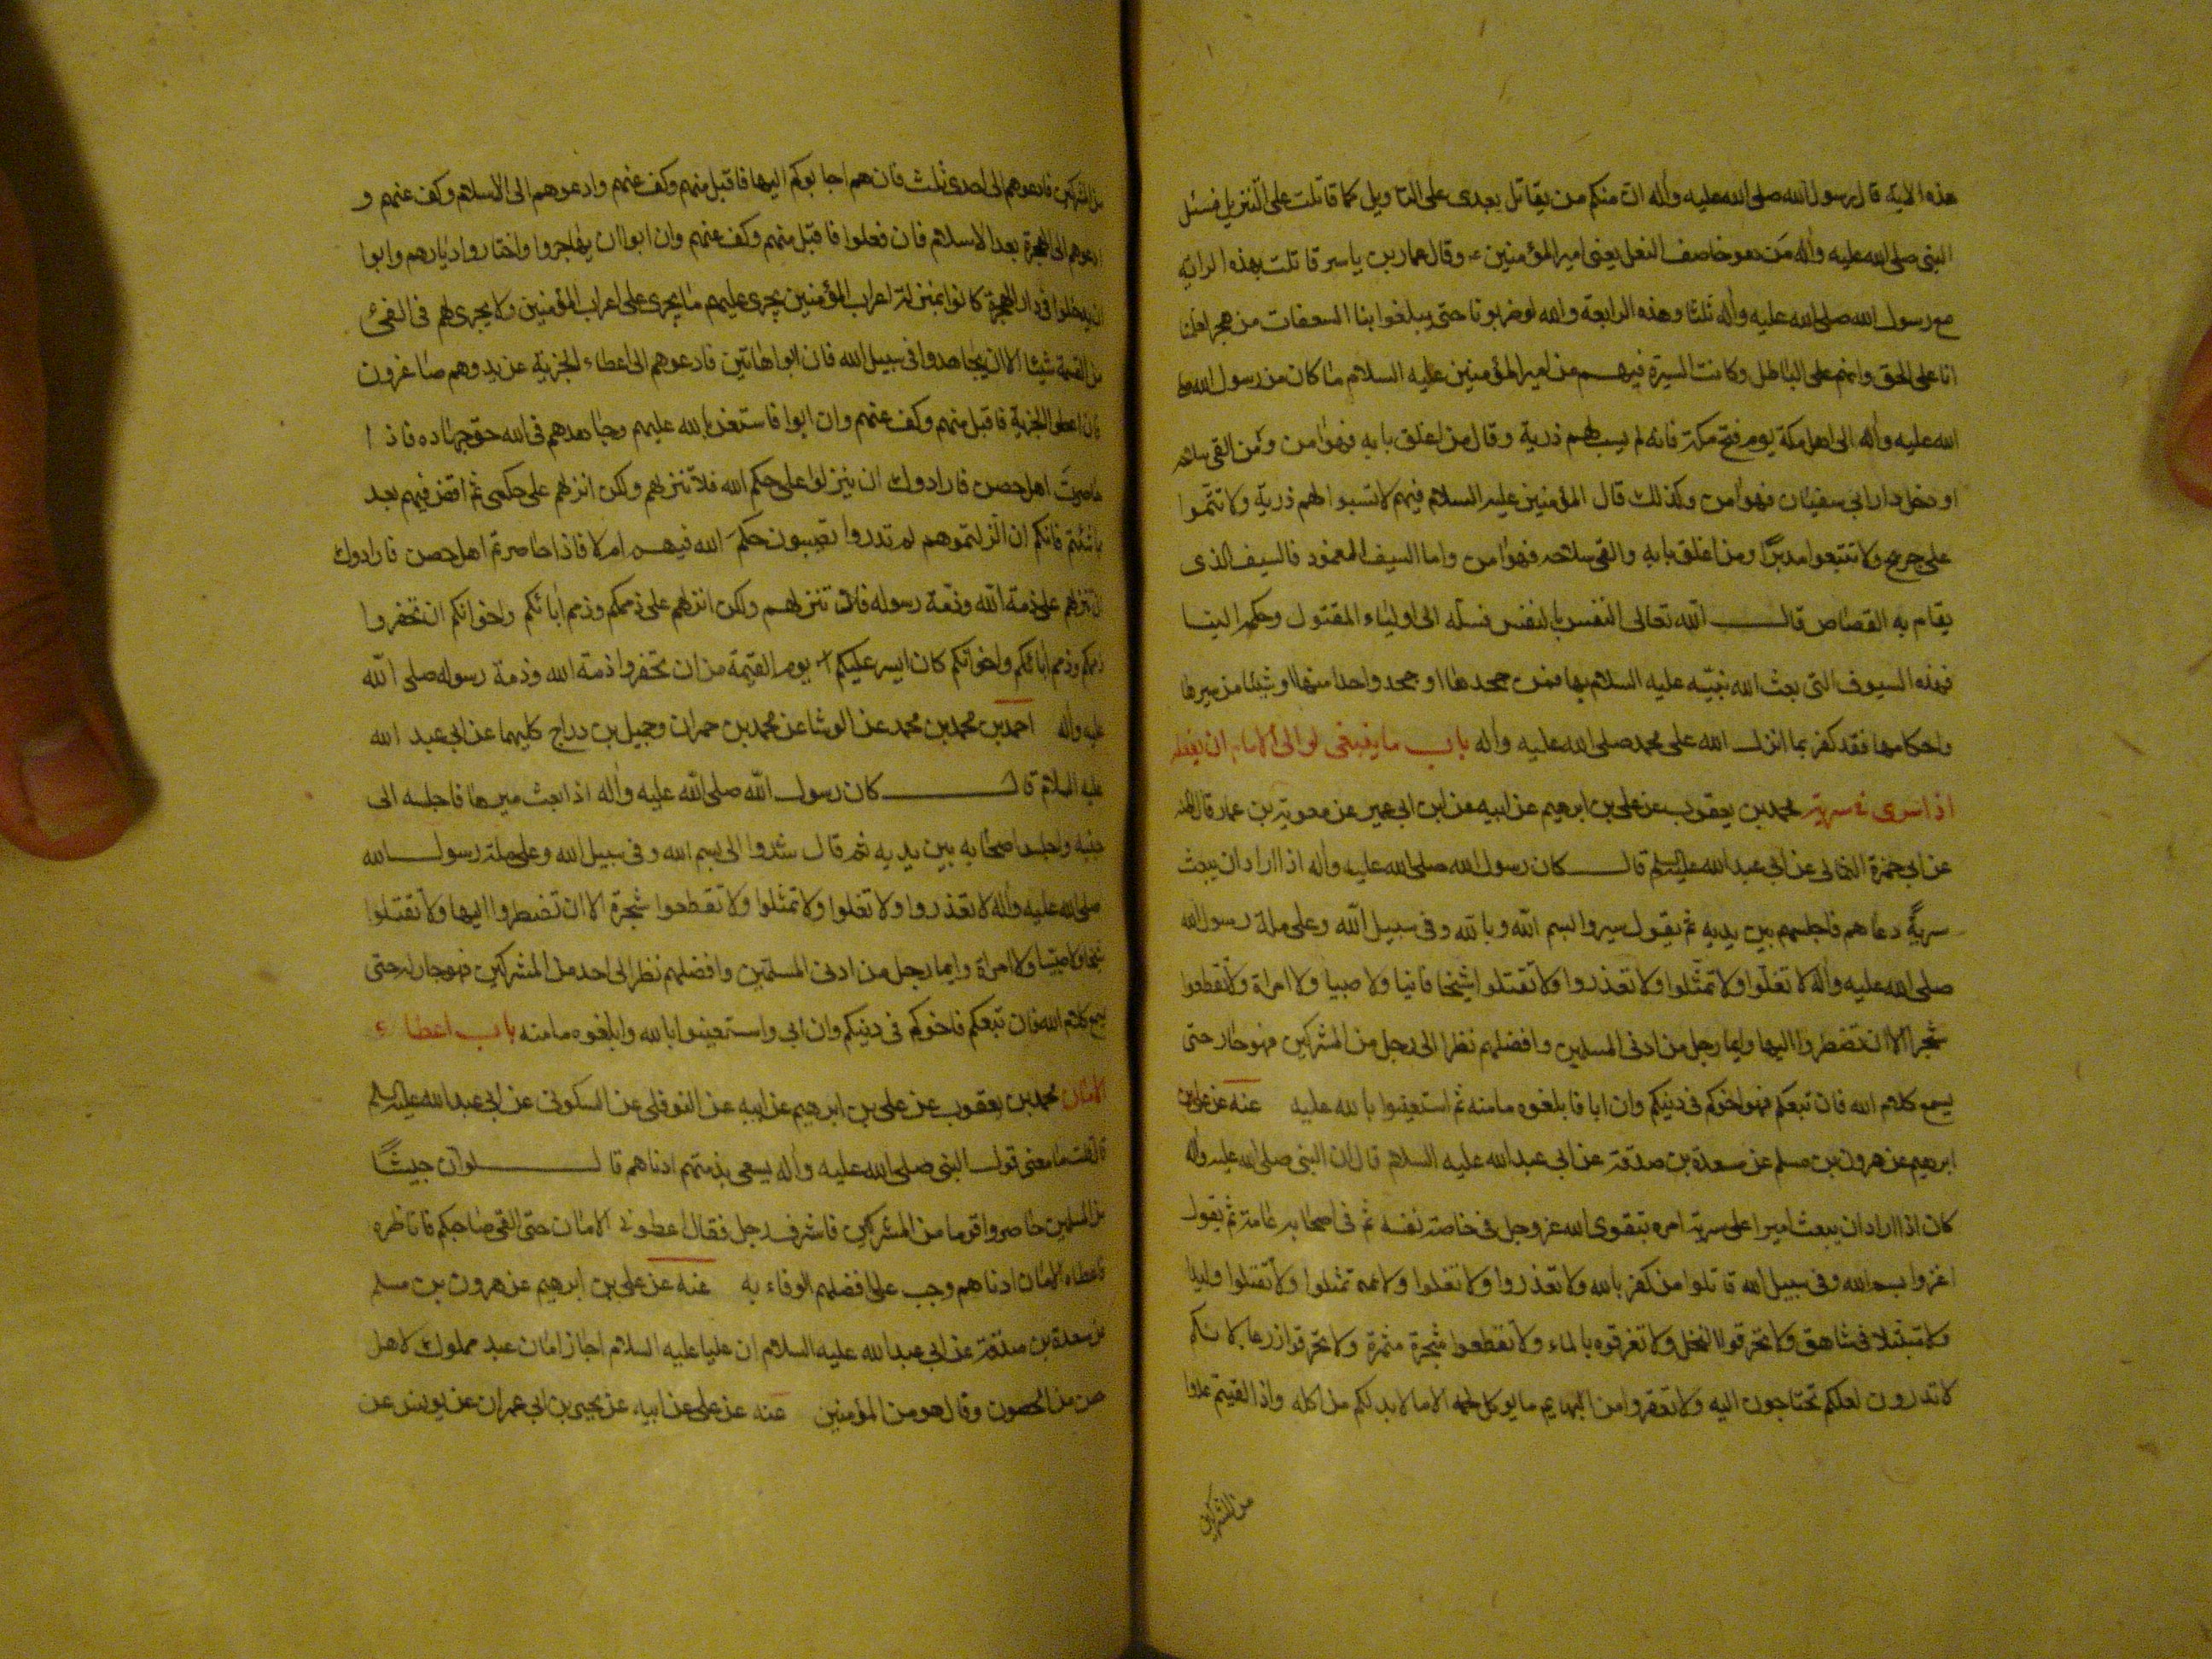 هذه الاية قال رسول الله صلى الله عليه وآله ان منكم من يقاتل بعدى على التاويل كما قاتلت على التنزيل فسئل
النبى صلى الله عليه وآله من هو خاصف النعل يعنى امير المؤمنين ع وقال عمار بن ياسر قاتلت بهذه الراية
مع رسول الله صلى الله عليه وآله ثلثا وهذه الرابعة والله لو ضربونا حتى يبلغوا بنا السعفات من هجر لعلمنا
انا على الحق وانهم على الباطل وكانت السيرة فيهم من امير المؤمنين عليه السلام ما كان من رسول الله صلى
الله عليه وآله الى اهل مكة يوم فتح مكة فانه لم يسب لهم ذرية وقال من اغلق بابه فهو آمن ومن القى سلاحه
او دخل دار ابى سفيان فهو آمن وكذلك قال المؤمنين عليه السلام فيهم لا تسبوا لهم ذرية ولا تتموا
على جريح ولا تتبعوا مدبرا ومن اغلق بابه والقى سلاحه فهو آمن واما السيف المغمود فالسيف الذى
يقام به القصاص قال الله تعالى النفس بالنفس فسله الى اولياء المقتول وحكمه الينا
فهذه السيوف التى بعث الله نبيّه عليه السلام بها فمن جحدها او جحد واحدا منها او شيئا من سيرها
واحكامها فقد كفر بما انزل الله على محمد صلى الله عليه وآله باب ما ينبغى لوالى الامام ان يفعله
اذا اسرى فى سرية محمد بن يعقوب عن على بن ابرهيم عن ابيه عن ابن ابى عمير عن معوية بن عمار قال اظنه
عن ابى حمزة الثمالى عن ابى عبد الله عليه السلام قال كان رسول الله صلى الله عليه وآله اذا اراد ان يبعث
سرية دعاهم فاجلسهم بين يديه ثم يقول سيروا بسم الله وبالله وفى سبيل الله وعلى ملة رسول الله
صلى الله عليه وآله لا تغلوا ولا تمثلوا ولا تغدروا ولا تقتلوا شيخا فانيا ولا صبيا ولا امراة ولا تقطعوا
شجرا الا ان تضطروا اليها وايما رجل من ادنى المسلمين وافضلهم نظر الى رجل من المشركين فهو جار حتى
يسمع كلام الله فان تبعكم فهو اخوكم فى دينكم وان ابا فابلغوه مامنه ثم استعينوا بالله عليه عنه عن على بن
ابرهيم عن هرون بن مسلم عن مسعدة بن صدقة عن ابى عبد الله عليه السلام قال ان النبى صلى الله عليه وآله
كان اذا اراد ان يبعث اميرا على سرية امره بتقوى الله عز وجل فى خاصة نفسه ثم فى اصحابه عامة ثم يقول
اغزوا بسم الله وفى سبيل الله قاتلوا من كفر بالله ولا تغدروا ولا تغلوا ولا تمثلوا ولا تقتلوا وليدا
ولا متبتلا فى شاهق ولا تحرقوا النخل ولا تغرقوه بالماء ولا تقطعوا شجرة مثمرة ولا تحرقوا زرعا لانكم
لا تدرون لعلكم تحتاجون اليه ولا تعقروا من البهايم ما يوكل لحمه الا ما لا بد لكم من اكله واذا لقيتم عدوا
من المشركين
من المشركين فادعوهم الى احدى ثلث فان هم اجابوكم اليها فاقبل منهم وكف عنهم وادعوهم الى الاسلام وكف عنهم و
ادعوهم الى الهجرة بعد الاسلام فان فعلوا فاقبل منهم وكف عنهم وان ابوا ان يهاجروا واختاروا ديارهم وابوا
ان يدخلوا فى دار الهجرة كانوا بمنزلة اعراب المؤمنين يجرى عليهم ما يجرى على اعراب المؤمنين ولا يجرى لهم فى الفئ
من القسمة شيئا الا ان يجاهدوا فى سبيل الله فان ابوا هاتين فادعوهم الى اعطاء الجزية عن يد وهم صاغرون
فان اعطوا الجزية فاقبل منهم وكف عنهم وان ابوا فاستعن بالله عليهم وجاهدهم فى الله حق جهاده فاذا
حاصرت اهل حصن فارادوك ان ينزلوا على حكم الله فلا تنزلهم ولكن انزلهم على حكمى ثم اقض فيهم بعد
ما شئتم فانكم ان انزلتموهم لم تدروا تصيبون حكم الله فيهم ام لا فاذا حاصرتم اهل حصن فارادوك
ان تنزلهم على ذمة الله وذمة رسوله فلا تنزلهم ولكن انزلهم على ذممكم وذمم ابائكم واخوانكم ان تخفروا
ذممكم وذمم ابائكم واخوانكم كان ايسر عليكم يوم القيمة من ان تخفروا ذمة الله وذمة رسوله صلى الله
عليه وآله احمد بن محمد بن محمد عن الوشا عن محمد بن حمران وجميل بن دراج كليهما عن ابى عبد الله
عليه السلام قال كان رسول الله صلى الله عليه وآله اذا بعث سرية دعا فاجلسه الى
جنبه واجلس اصحابه بين يديه ثم قال سيروا الى بسم الله وفى سبيل الله وعلى ملة رسول الله
صلى الله عليه وآله لا تغدروا ولا تغلوا ولا تمثلوا ولا تقطعوا شجرة الا ان تضطروا اليها ولا تقتلوا
شيخا ولا صبيا ولا امراة وايما رجل من ادنى المسلمين وافضلهم نظر الى احد من المشركين فهو جار له حتى
يسمع كلام الله فان تبعكم فاخوكم فى دينكم وان ابى واستعينوا بالله وابلغوه مامنه باب اعطاء
الامان محمد بن يعقوب عن على بن ابرهيم عن ابيه عن النوفلى عن السكونى عن ابى عبد الله عليه السلام
قال قلت ما معنى قول النبى صلى الله عليه وآله يسعى بذمتهم ادناهم قال لو ان جيشا
من المسلمين حاصروا قوما من المشركين فاشرف رجل فقال اعطونى الامان حتى القى صاحبكم فاناظره
فاعطاه الامان ادناهم وجب على افضلهم الوفاء به عنه عن على بن ابرهيم عن هرون بن مسلم
عن مسعدة بن صدقة عن ابى عبد الله عليه السلام ان عليا عليه السلام اجاز امان عبد مملوك لاهل
حصن من الحصون وقال هو من المؤمنين عنه عن على عن ابيه عن يحيى بن ابى عمران عن يونس عن